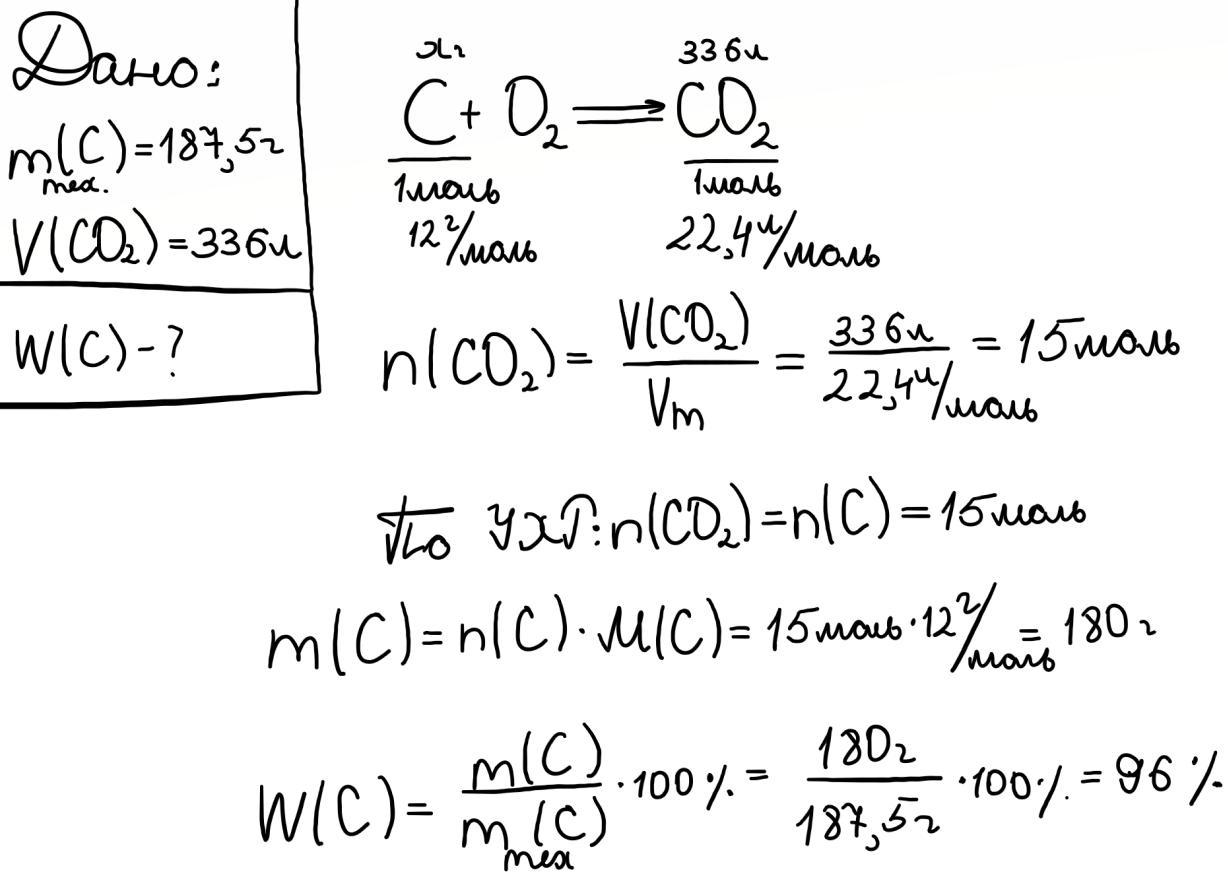 Дано:
m тех.(C) = 187,5г
V(CO₂) = 336л
W(C) - ?
xг 336л
C + O₂ ⟹ CO₂
1моль 1моль
12 г/моль 22,4 л/моль
n(CO₂) = V(CO₂)/Vm = 336л/22,4 л/моль = 15моль
По УХР: n(CO₂) = n(C) = 15моль
m(C) = n(C) · M(C) = 15моль · 12 г/моль = 180г
W(C) = m(C)/m тех(C) · 100% = 180г/187,5г · 100% = 96%